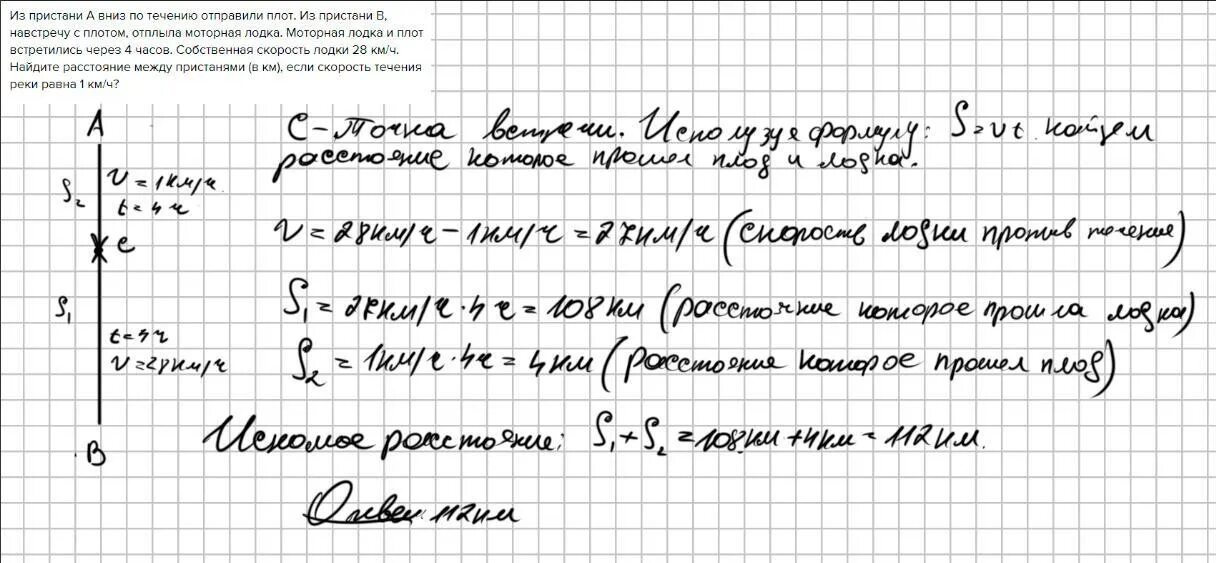 Из пристани А вниз по течению отправили плот. Из пристани В,
навстречу с плотом, отплыла моторная лодка. Моторная лодка и плот
встретились через 4 часов. Собственная скорость лодки 28 км/ч.
Найдите расстояние между пристанями (в км), если скорость течения
реки равна 1 км/ч?
A
S₂
V = 1км/ч
t = 4 ч
C
S₁
t = 4ч
V = 28км/ч
B
C – Точка встречи. Используя формулу: S = vt найдем
расстояние которое прошел плод и лодка.
V = 28км/ч – 1км/ч = 27км/ч (скорость лодки против течение)
S₁ = 27км/ч · 4 ч = 108 км (расстояние которое прошла лодка)
S₂ = 1км/ч · 4ч = 4км (расстояние которое прошел плод)
Искомое расстояние: S₁ + S₂ = 108км + 4км = 112км.
Ответ: 112км